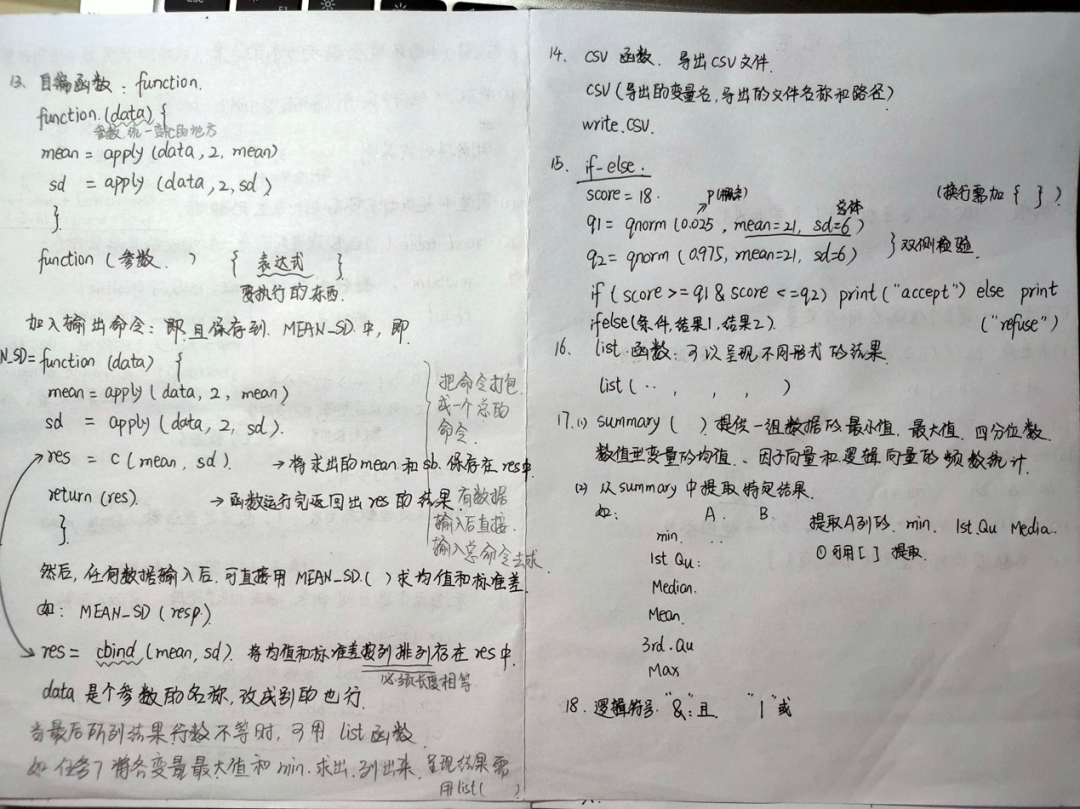 13、自编函数：function.
function (data) {
参数,统一变化的地方
mean = apply (data, 2, mean)
sd = apply (data, 2, sd)
}.
function (参数. ) { 表达式 }
要执行的东西.
加入输出命令：即,且保存到 MEAN_SD 中, 即
N_SD= function (data) {
mean = apply (data, 2, mean)
sd = apply (data, 2, sd).
res = c (mean, sd). → 将求出的mean和sb.保存在res中.
return (res). → 函数运行完返回出 res 的结果.
}.
把命令打包
成一个总的
命令.
有数据
输入后直接.
输入总命令去求.
然后, 任何数据输入后, 可直接用 MEAN_SD.( ) 求均值和标准差.
如： MEAN_SD (resp.)
res = cbind (mean, sd). 将均值和标准差按列排列存在 res 中.
必须长度相等
data 是个参数的名称, 改成别的也行.
当最后所列结果行数不等时, 可用 list 函数.
如 任务7 将各变量最大值和 min. 求出.列出来. 呈现结果需
用list( )
14. CSV 函数. 导出 CSV 文件.
CSV (导出的变量名,导出的文件名称和路径)
write.CSV.
15. if-else.
score = 18. p(概率) (换行需加 { } )
总体
q1 = qnorm (0.025, mean=21, sd=6)
q2 = qnorm (0.975, mean=21, sd=6) } 双侧检验.
if ( score >= q1 & score <= q2) print ("accept") else print
("refuse")
ifelse(条件,结果1,结果2).
16. list 函数：可以呈现不同形式的结果.
list ( ··, , , )
17.(1) summary ( ). 提供一组数据的最小值. 最大值. 四分位数.
数值型变量的均值.、因子向量和逻辑向量的频数统计.
(2) 从 summary 中提取特定结果.
如： A. B.
min.
1st Qu：
Median.
Mean.
3rd.Qu
Max
提取A列的. min. 1st.Qu Media.
①可用 [ ] 提取.
18. 逻辑符号. "&"：且. "|" 或